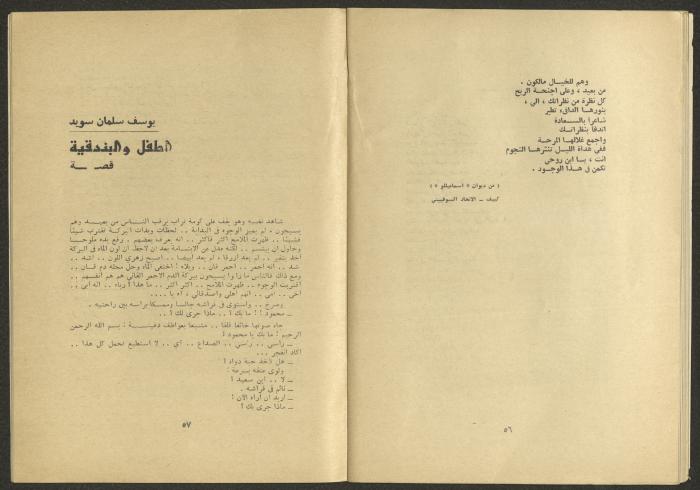 وهم للخيال مالكون .
من بعيد ، وعلى اجنحة الريح
كل نظرة من نظراتك ، الي ،
بنورها الدافيء تطير
شاعرا بالسعادة
اتدفأ بنظراتك
واجمع غلالها المرحة
ففي هداة الليل تنثرها النجوم
انت ، يا ابن روحي
تكمن في هذا الوجود .
( من ديوان « اسمائيللو » )
كييف ــ الاتحاد السوفييتي
٥٦
يوسف سلمان سويد
الطفل والبندقية
قصــة
شاهد نفسه وهو يقف على كومة تراب يرقب الناس من بعيد وهم
يسبحون ، لم يميز الوجوه في البداية .. لحظات وبدات البركة تقترب شيئا
فشيئا .. ظهرت الملامح اكثر فاكثر .. انه يعرف بعضهم . رفع يده ملوحا
وحاول ان يبتسم .. لكنه عدل عن الابتسامة بعد ان لاحظ ان لون الماء في البركة
اخذ يتغير .. لم يعد ازرقا ، لم يعد ابيضا .. اصبح زهري اللون .. اشد ..
شد .. انه احمر .. احمر قان .. ويلاه ! اختفى الماء وحل محله دم قان ..
ومع ذلك فالناس ما زالوا يسبحون ببركة الدم الاحمر القاني هم هم انفسهم ..
اقتربت الوجوه .. ظهرت الملامح .. اكثر اكثر .. ما هذا ! رباه .. انه ابي ..
اخي .. امي .. انهم اهلي واصدقائي ، آه يا ....
وصرخ .. واستوى في فراشه جالسا وممسكا براسه بين راحتيه .
ــ محمود !! ما بك ؟ .. ماذا جرى لك ؟ ..
جاء صوتها خائفا قلقا .. متبعا بعواطف دفينة : بسم الله الرحمن
الرحيم ! ما بك يا محمود ؟
ــ راسي .. راسي .. الصداع .. آي .. لا استطيع تحمل كل هذا ..
اكاد انفجر ...
ــ هل تأخذ حبة دواء ؟
ولوى عنقه بسرعة :
ــ لا .. اين سعيد ؟
ــ نائم في فراشه .
ــ اريد ان اراه الآن !
ــ ماذا جرى بك ؟
٥٧